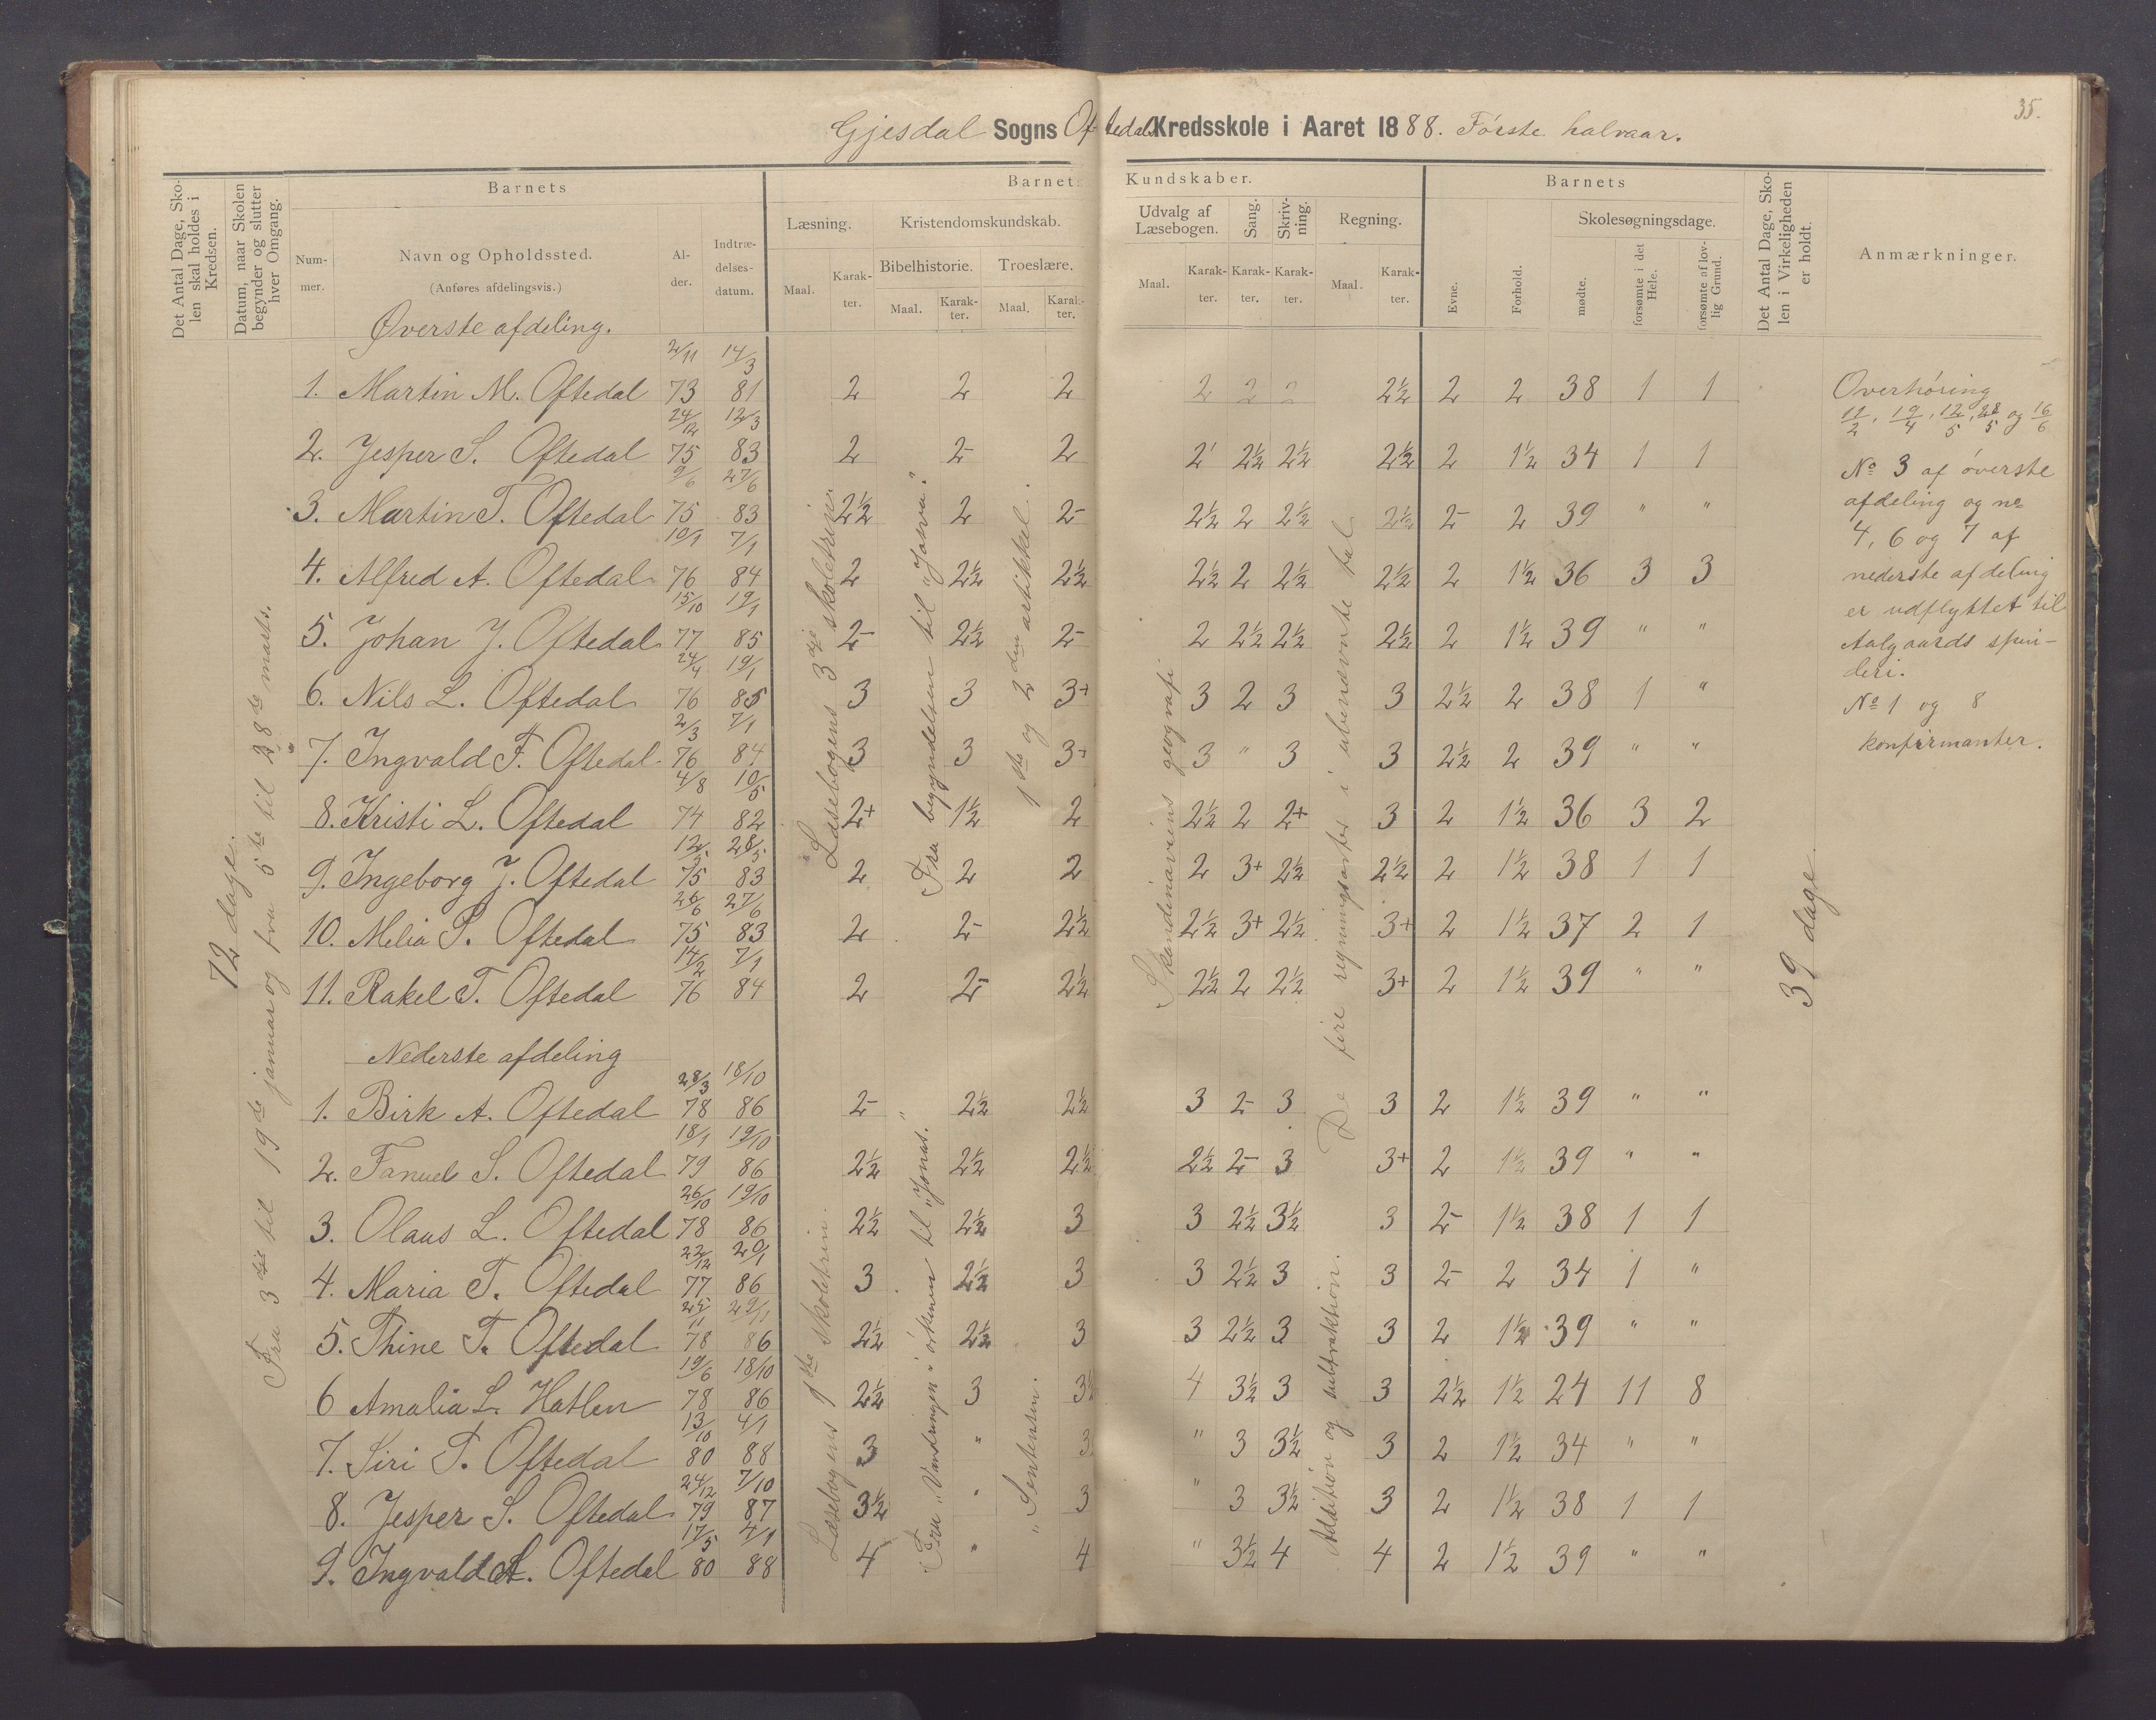 35.
Gjesdal Sogns Oftedals Kredsskole i Aaret 1888. Første halvaar.
Det Antal Dage, Skolen skal holdes i Kredsen.
Datum, naar Skolen begynder og slutter hver Omgang.
Barnets
Barnets Kundskaber.
Barnets
Det Antal Dage, Skolen i Virkeligheden er holdt.
Anmærkninger.
Nummer.
Navn og Opholdssted.
(Anføres afdelingsvis.)
Alder.
Indtrædelsesdatum.
Læsning.
Kristendomskundskab.
Udvalg af Læsebogen.
Sang.
Skrivning.
Regning.
Evne.
Forhold.
Skolesøgningsdage.
Maal.
Karakter.
Bibelhistorie.
Troeslære.
Maal. Karakter. Maal. Karakter.
Maal. Karakter. Karakter. Karakter. Maal. Karakter.
mødte.
forsømte i det Hele.
forsømte af lovlig Grund.
72 dage.
Fra 3die til 19de januar og fra 5te til 28de marts.
Læsebogens 3die skoletrin.
Fra begyndelsen til „Josva".
1ste og 2den artikkel.
Skandinaviens geografi
De fire regningsarter i ubenævnte tal
39 dage.
Øverste afdeling.
2/11 14/3
1. Martin M. Oftedal 73 81 2 2 2 2 2 2 2½ 2 2 38 1 1
24/12 12/3
2. Jesper S. Oftedal 75 83 2 2- 2 2' 2½ 2½ 2½ 2 1½ 34 1 1
9/6 27/6
3. Martin T. Oftedal 75 83 2½ 2 2- 2½ 2 2½ 2½ 2- 2 39 " "
10/1 7/1
4. Alfred A. Oftedal 76 84 2 2½ 2½ 2½ 2 2½ 2½ 2 1½ 36 3 3
15/10 19/1
5. Johan J. Oftedal 77 85 2- 2½ 2- 2 2½ 2½ 2½ 2 1½ 39 " "
24/4 19/1
6. Nils L. Oftedal 76 85 3 3 3+ 3 2 3 3 2½ 2 38 1 "
2/3 7/1
7. Ingvald F. Oftedal 76 84 3 3 3+ 3 " 3 3 2½ 2 39 " "
4/8 10/5
8. Kristi L. Oftedal 74 82 2+ 1½ 2 2½ 2 2+ 3 2 1½ 36 3 2
12/5 28/5
9. Ingeborg J. Oftedal 75 83 2 2 2 2 3+ 2½ 2½ 2 1½ 38 1 1
26/6 27/6
10. Melia P. Oftedal 75 83 2 2- 2½ 2½ 3+ 2½ 3+ 2 1½ 37 2 1
14/2 7/1
11. Rakel T. Oftedal 76 84 2 2- 2½ 2½ 2 2½ 3+ 2 1½ 39 " "
Nederste afdeling
Læsebogens 1ste skoletrin.
Fra „Vandringen i ørkenen til „Jonas."
„Sentensen.
Addition og subtraktion.
28/3 18/10
1. Birk A. Oftedal 78 86 2- 2½ 2½ 3 2- 3 3 2 1½ 39 " "
18/1 19/10
2. Fanuel S. Oftedal 79 86 2½ 2½ 2½ 2½ 2- 3 3+ 2 1½ 39 " "
26/10 19/10
3. Olaus L. Oftedal 78 86 2½ 2½ 3 3 2½ 3½ 3 2- 1½ 38 1 1
22/12 20/1
4. Maria T. Oftedal 77 86 3 2½ 3 3 2½ 3 3 2- 2 34 1 "
25/11 29/1
5. Thine T. Oftedal 78 86 2½ 2½ 3 3 2½ 3 3 2 1½ 39 " "
19/6 18/10
6 Amalia L. Hatlen 78 86 2½ 3 3½ 4 3½ 3 3 2½ 1½ 24 11 8
13/10 4/1
7. Siri P. Oftedal 80 88 3 " 3 " 3 3½ 3 2 1½ 34 " "
24/12 7/10
8. Jesper S. Oftedal 79 87 3½ " 3 " 3 3½ 3 2 1½ 38 1 1
17/5 4/1
9. Ingvald A. Oftedal 80 88 4 " 4 " 3½ 4 4 2 1½ 39 " "
Overhøring
12/2, 19/4, 12/5, 28/5 og 16/6
No 3 af øverste
afdeling og no
4, 6 og 7 af
nederste afdeling
er udflyttet til
Aalgaards spin-
deri.
No 1 og 8
konfirmanter.